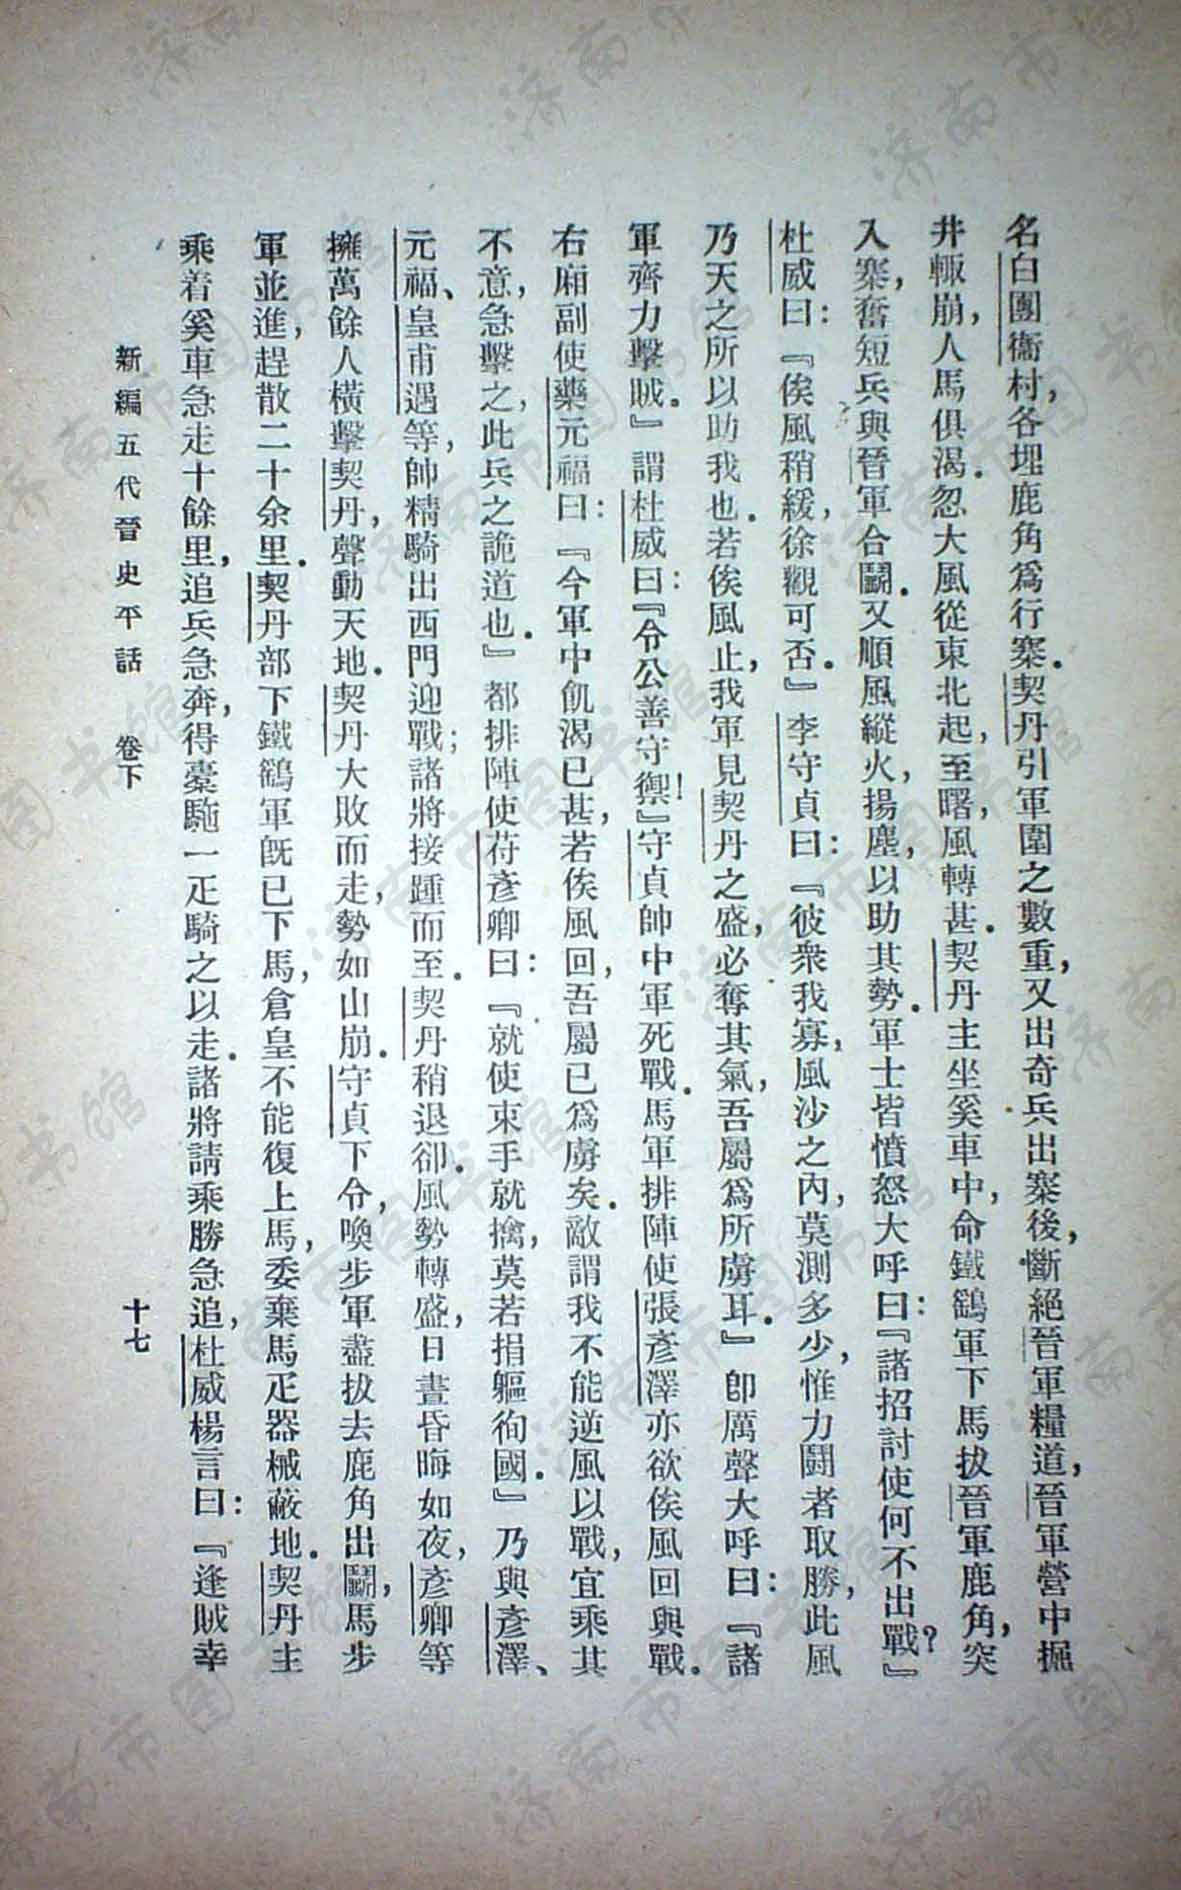 名白團衞村，各埋鹿角爲行寨．契丹引軍圍之數重，又出奇兵出寨後，斷絕晉軍糧道，晉軍營中掘
井輙崩，人馬俱渴．忽大風從東北起，至曙，風轉甚．契丹主坐奚車中，命鐵鷂軍下馬拔晉軍鹿角，突
入寨，奮短兵與晉軍合鬭．又順風縱火，揚塵，以助其勢．軍士皆憤怒大呼曰：『諸招討使何不出戰？』
杜威曰：『俟風稍緩，徐觀可否．』李守貞曰：『彼衆我寡，風沙之內，莫測多少，惟力鬬者取勝，此風
乃天之所以助我也．若俟風止，我軍見契丹之盛，必奪其氣，吾屬爲所虜耳．』卽厲聲大呼曰：『諸
軍齊力擊賊．』謂杜威曰：『令公善守禦！』守貞帥中軍死戰．馬軍排陣使張彥澤亦欲俟風回與戰．
右廂副使藥元福曰：『今軍中飢渴已甚，若俟風回，吾屬已爲虜矣．敵謂我不能逆風以戰，宜乘其
不意，急擊之，此兵之詭道也．』都排陣使苻彥卿曰：『就使束手就擒，莫若捐軀徇國．』乃與彥澤、
元福、皇甫遇等，帥精騎出西門迎戰；諸將接踵而至．契丹稍退卻．風勢轉盛，日晝昏晦如夜，彥卿等
擁萬餘人橫擊契丹，聲動天地．契丹大敗而走，勢如山崩．守貞下令，喚步軍盡拔去鹿角出鬭，馬步
軍並進，趕散二十余里．契丹部下鐵鷂軍旣已下馬，倉皇不能復上馬，委棄馬疋器械蔽地．契丹主
乘着奚車急走十餘里，追兵急奔，得橐駞一疋騎之以走．諸將請乘勝急追，杜威楊言曰：『逢賊幸
新編五代晉史平話　卷下　十七
济南市图书馆